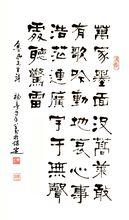 萬家墨面沒蒿萊敢
有歌吟動地哀心事
浩茫連廣宇于無聲
處聽驚雷